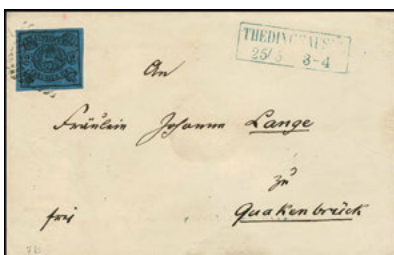 THEDINGHAUSEN
25/5 3-4
An
Fräulein Johanne Lange
zu
frei Quakenbrück